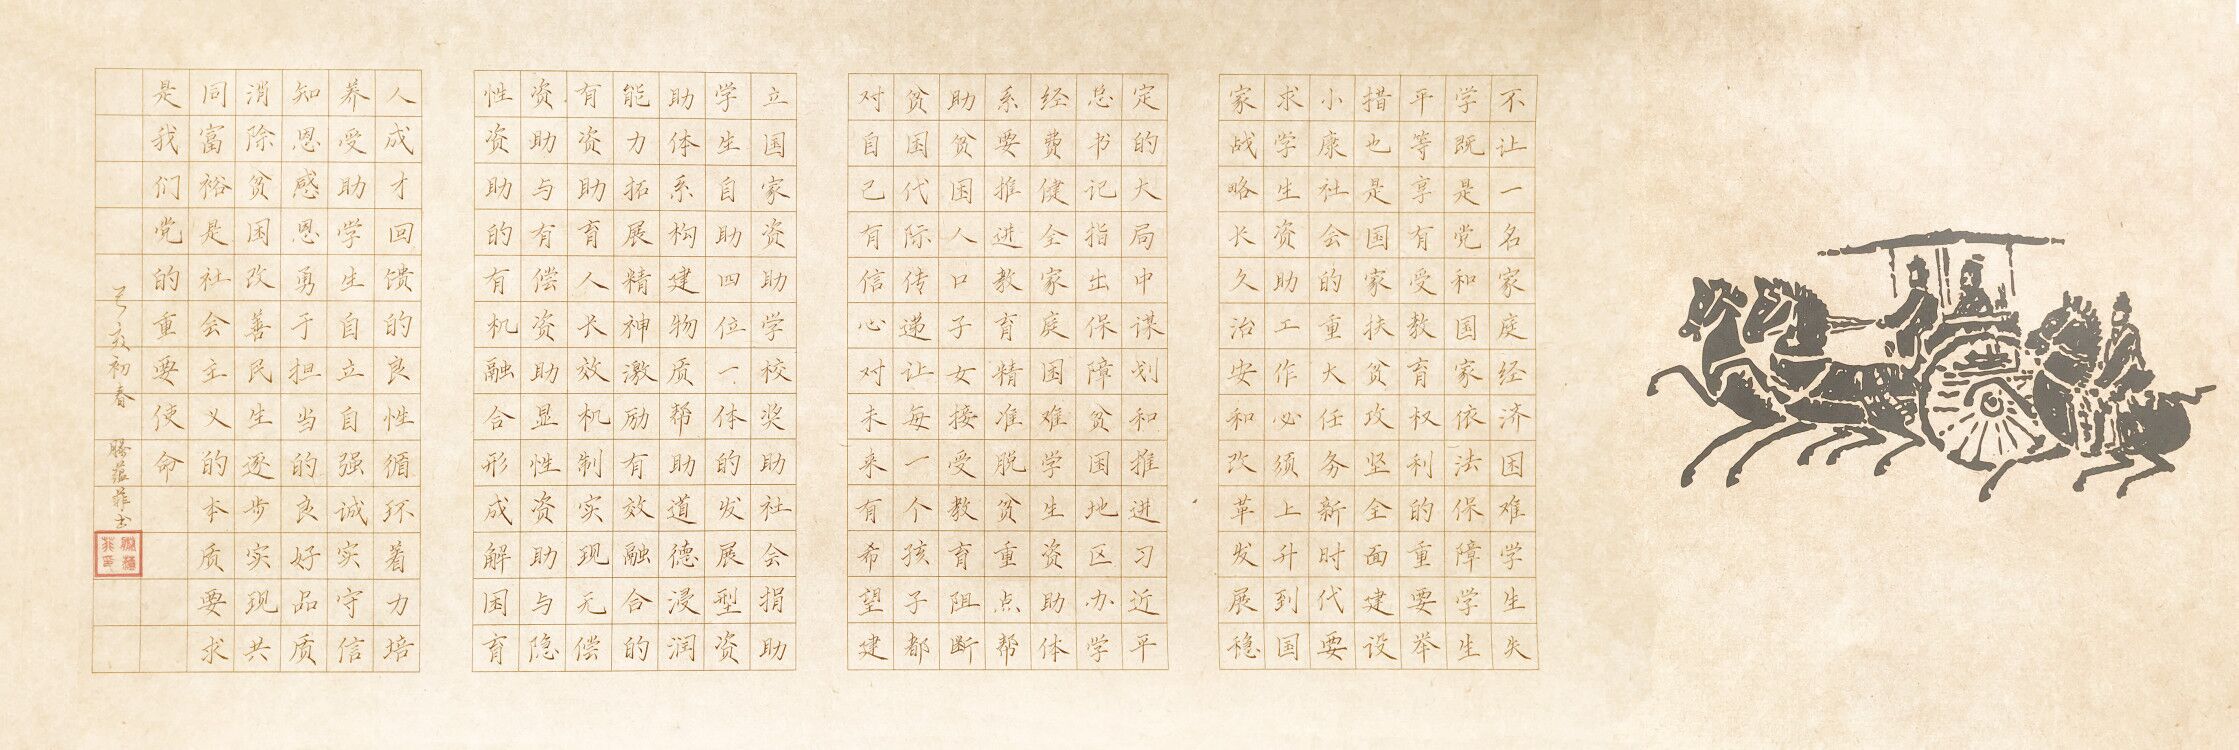 不让一名家庭经济困难学生失
学既是党和国家依法保障学生
平等享有受教育权利的重要举
措也是国家扶贫攻坚全面建设
小康社会的重大任务新时代要
求学生资助工作必须上升到国
家战略长久治安和改革发展稳
定的大局中谋划和推进习近平
总书记指出保障贫国地区办学
经费健全家庭困难学生资助体
系要推进教育精准脱贫重点帮
助贫困人口子女接受教育阻断
贫困代际传递让每一个孩子都
对自己有信心对未来有希望建
立国家资助学校奖助社会捐助
学生自助四位一体的发展型资
助体系构建物质帮助道德浸润
能力拓展精神激励有效融合的
有资助育人长效机制实现无偿
资助与有偿资助显性资助与隐
性资助的有机融合形成解困育
人成才回馈的良性循环着力培
养受助学生自立自强诚实守信
知恩感恩勇于担当的良好品质
消除贫困改善民生逐步实现共
同富裕是社会主义的本质要求
是我们党的重要使命
己亥初春 滕蕴菲书